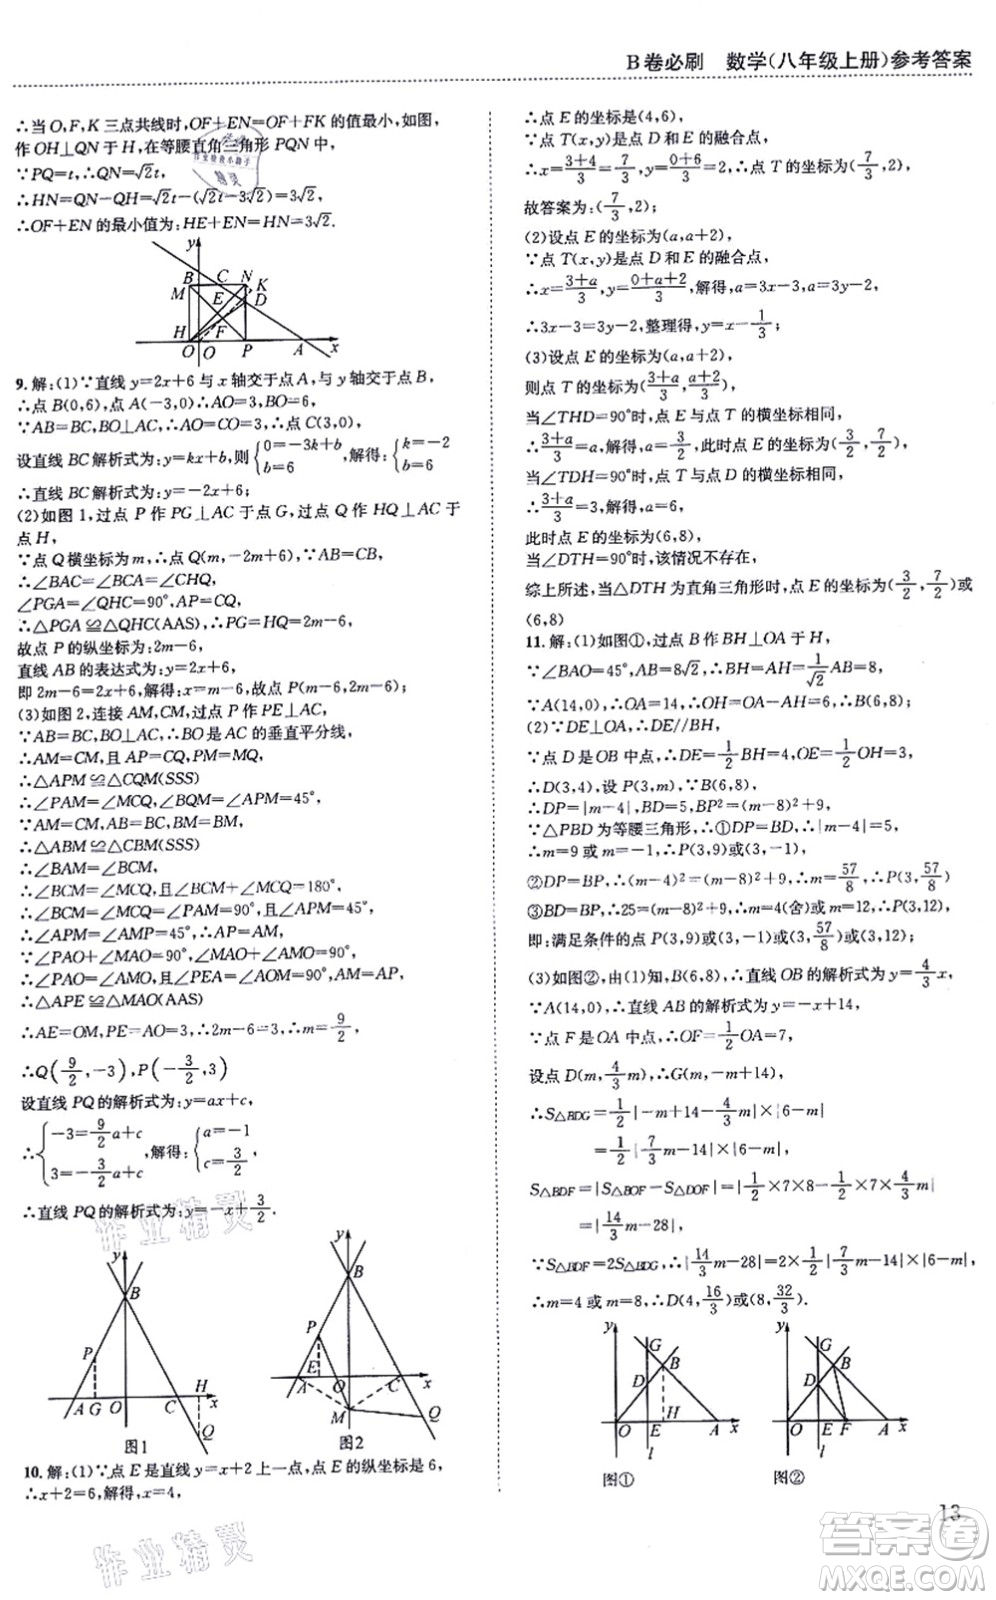 B卷必刷 数学(八年级上册)参考答案
∴当 O,F,K 三点共线时,OF+EN=OF+FK 的值最小,如图,
作 OH⊥QN 于 H,在等腰直角三角形 PQN 中,
∵PQ=t,∴QN=√2t,
∴HN=QN-QH=√2t-(√2t-3√2)=3√2,
∴OF+EN 的最小值为:HE+EN=HN=3√2.
y
B C N K
M E D
H F
O Q P A x
9.解:(1)∵直线 y=2x+6 与 x 轴交于点 A,与 y 轴交于点 B,
∴点 B(0,6),点 A(-3,0)∴BO=6,
∵AB=BC,BO⊥AC,∴AO=CO=3,∴C(3,0),
设直线 BC 解析式为:y=kx+b,则{0=-3k+b b=6,解得:{k=-2 b=6
∴直线 BC 解析式为:y=-2x+6;
(2)如图 1,过点 P 作 PG⊥AC 于点 G,过点 Q 作 HQ⊥AC 于
点 H,
∵点 Q 横坐标为 m,∴点 Q(m,-2m+6),∵AB=CB,
∴∠BAC=∠BCA=∠HCQ,
∵∠PGA=∠QHC=90°,AP=CQ,
∴△PGA≌△QHC(AAS)∴PG=HQ=2m-6,
故点 P 的纵坐标为:2m-6,
直线 AB 的表达式为:y=2x+6,
即 2m-6=2x+6,解得:x=m-6,故点 P(m-6,2m-6);
(3)如图 2,连接 AM,CM,过点 P 作 PE⊥AC,
∵AB=BC,BO⊥AC,∴BO 是 AC 的垂直平分线,
∴AM=CM,∵AP=CQ,PM=MQ,
∴△APM≌△CQM(SSS)
∴∠PAM=∠MCQ,∠BQM=∠APM=45°,
∵AM=CM,AB=BC,BM=BM,
∴△ABM≌△CBM(SSS)
∴∠BAM=∠BCM,
∴∠BCM=∠MCQ,∵∠BCM+∠MCQ=180°,
∴∠BCM=∠MCQ=∠PAM=90°,∵∠APM=45°,
∴∠APM=∠AMP=45°,∴AP=AM,
∵∠PAO+∠MAO=90°,∠MAO+∠AMO=90°,
∴∠PAO=∠AMO,∵∠PEA=∠AOM=90°,AM=AP,
∴△APE≌△MAO(AAS)
∴AE=OM,PE=AO=3,∴2m-6=3,∴m=9/2,
∴Q(9/2,-3),P(-3/2,3)
设直线 PQ 的解析式为:y=ax+c,
∴{-3=9/2a+c 3=-3/2a+c,解得:{a=-1 c=3/2
∴直线 PQ 的解析式为:y=-x+3/2.
y B P H A G O C x Q
图1
y B P E A O C x M Q
图2
10.解:(1)∵点 E 是直线 y=x+2 上一点,点 E 的纵坐标是 6,
∴x+2=6,解得,x=4,
∴点 E 的坐标是(4,6),
∵点 T(x,y)是点 D 和 E 的融合点,
∴x=3+4/3=7/3,y=0+6/3=2,∴点 T 的坐标为(7/3,2),
故答案为:(7/3,2);
(2)设点 E 的坐标为(a,a+2),
∵点 T(x,y)是点 D 和 E 的融合点,
∴x=3+a/3,y=0+a+2/3,解得,a=3x-3,a=3y-2,
∴3x-3=3y-2,整理得,y=x-1/3;
(3)设点 E 的坐标为(a,a+2),
则点 T 的坐标为(3+a/3,a+2/3),
当∠THD=90°时,点 E 与点 T 的横坐标相同,
∴3+a/3=a,解得,a=3/2,此时点 E 的坐标为(3/2,7/2),
当∠TDH=90°时,点 T 与点 D 的横坐标相同,
∴3+a/3=3,解得,a=6,
此时点 E 的坐标为(6,8),
当∠DTH=90°时,该情况不存在,
综上所述,当△DTH 为直角三角形时,点 E 的坐标为(3/2,7/2)或
(6,8)
11.解:(1)如图①,过点 B 作 BH⊥OA 于 H,
∵∠BAO=45°,AB=8√2,∴BH=AH=1/√2AB=8,
∵A(14,0),∴OA=14,∴OH=OA-AH=6,∴B(6,8);
(2)∵DE⊥OA,∴DE//BH,
∵点 D 是 OB 中点,∴DE=1/2BH=4,OE=1/2OH=3,
∴D(3,4),设 P(3,m),
∴DP=|m-4|,BD=5,BP²=(m-8)²+9,
∵△PBD 为等腰三角形,∴①DP=BD,∴|m-4|=5,
∴m=9或m=-1,∴P(3,9)或(3,-1),
②DP=BP,∴(m-4)²=(m-8)²+9,∴m=57/8,∴P(3,57/8)
③BD=BP,∴25=(m-8)²+9,∴m=4(舍)或m=12,
即:满足条件的点 P(3,9)或(3,-1)或(3,57/8)或(3,12),
(3)如图②,由(1)知,B(6,8),∴直线 OB 的解析式为 y=4/3x,
∵A(14,0),∴直线 AB 的解析式为 y=-x+14,
∵点 F 是 OA 中点,∴OF=1/2OA=7,
设点 D(m,4/3m),∴G(m,-m+14),
∴S△BDG=1/2|-m+14-4/3m|×|m-6|
=1/2|7/3m-14|×|m-6|,
S△BDF=|S△BOF-S△DOF|=|1/2×7×8-1/2×7×4/3m|
=|14/3m-28|,
∵S△BDF=2S△BDG,∴|14/3m-28|=2×1/2|7/3m-14|×|m-6|,
∴m=4 或 m=8,∴D(4,16/3)或(8,32/3).
y G B D O E H A x l
图①
y G B D O E F A x l
图②
13
作业精灵
作业精灵
答案圈
MXQE.COM